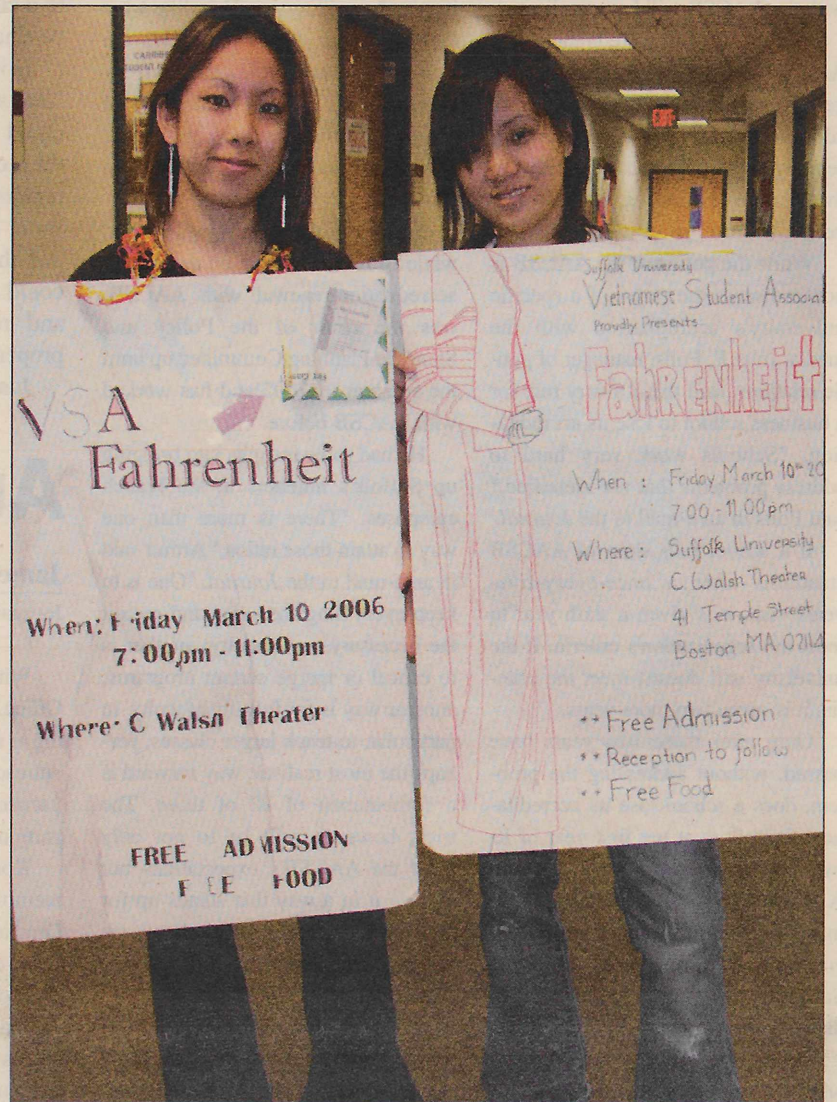 EXIT
VSA
Fahrenheit
When: Friday March 10 2006
7:00pm - 11:00pm
Where: C Walsh Theater
FREE ADMISSION
FREE FOOD
Suffolk University
Vietnamese Student Associat
Proudly Presents
FAHRENHEIT
When : Friday March 10th 20
7:00 - 11:00pm
Where : Suffolk University
C Walsh Theater
41 Temple Street
Boston MA 02114
** Free Admission
** Reception to follow
** Free Food